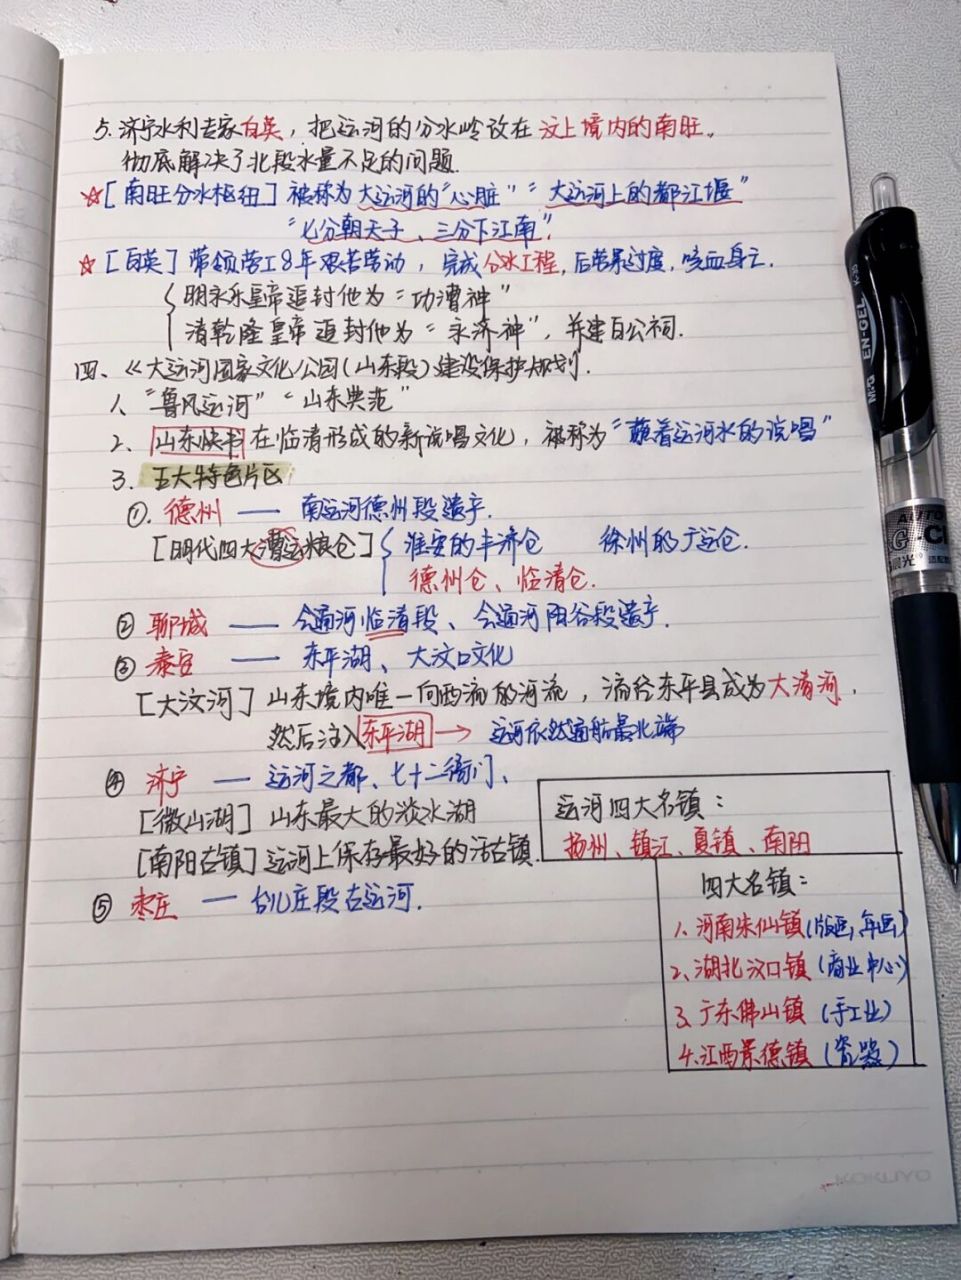 5. 济宁水利专家白英，把运河的分水岭设在汶上境内的南旺。
彻底解决了北段水量不足的问题.
☆[南旺分水枢纽] 被称为大运河的“心脏” “大运河上的都江堰”
“七分朝天子、三分下江南”.
☆[白英] 带领劳工8年艰苦劳动，完成分水工程，后劳累过度，呕血身亡.
明永乐皇帝追封他为“功漕神”
清乾隆皇帝追封他为“永济神”，并建白公祠.
四、《大运河国家文化公园(山东段)建设保护规划.
1、“鲁风运河” “山东典范”
2、山东快书在临清形成的新说唱文化，被称为“蘸着运河水的说唱”
3、五大特色片区
①. 德州 —— 南运河德州段遗产.
[明代四大漕运粮仓] 淮安的丰济仓 徐州的广运仓.
德州仓、临清仓.
② 聊城 —— 会通河临清段、会通河阳谷段遗产.
③ 泰安 —— 东平湖、大汶口文化
[大汶河] 山东境内唯一向西流的河流，流经东平县成为大清河.
然后注入东平湖 → 运河依然通航最北端
④ 济宁 —— 运河之都、七十二衙门、
[微山湖] 山东最大的淡水湖
[南阳古镇] 运河上保存最好的活古镇.
⑤ 枣庄 —— 台儿庄段古运河.
运河四大名镇：
扬州、镇江、夏镇、南阳
四大名镇：
1、河南朱仙镇(版画,年画)
2、湖北汉口镇(商业中心)
3、广东佛山镇(手工业)
4.江西景德镇(瓷器)
KOKUYO
M&G EN-GEL K-35
晨光